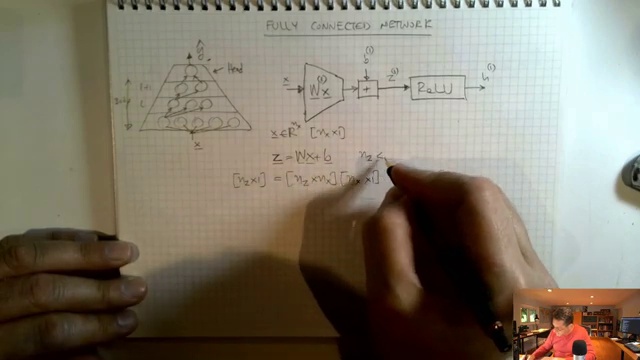 FULLY CONNECTED NETWORK
ŷ
Head
L+1
L
x
x
W^(1)x
b^(1)
+
z^(1)
ReLU
h^(1)
x ∈ R^nx [nx×1]
z = Wx+b nz ≤
[nz×1] = [nz×nx] [nx×1]